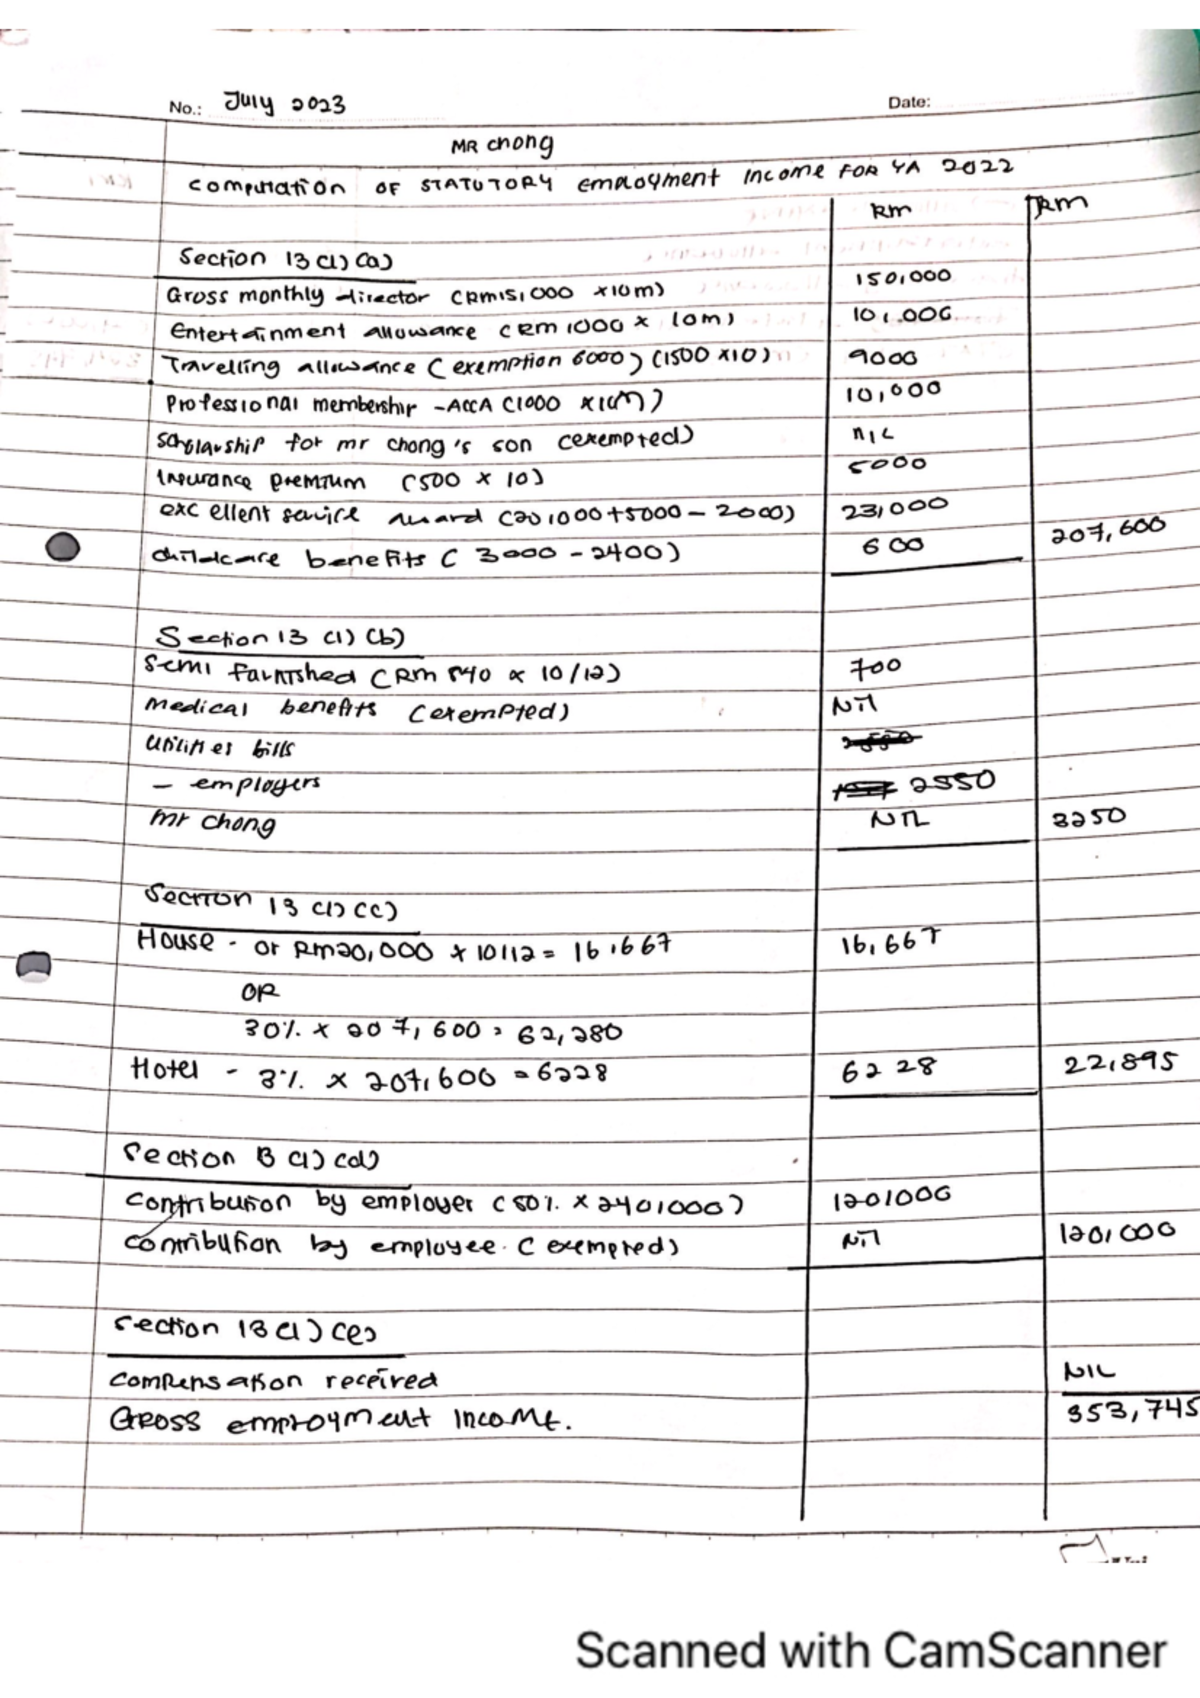 No.: July 2023 Date:
MR chong
computation OF STATUTORY employment Income FOR YA 2022
RM RM
Section 13 (1) (a)
Gross monthly director (RM15,000 x10m) 150,000
Entertainment allowance (RM 1000 x 10m) 10,000
Travelling allowance (exemption 6000) (1500 x10) 9000
Professional membership -ACCA (1000 x10m) 10,000
scholarship for mr chong's son (exempted) NIL
Insurance premium (500 x 10) 5000
excellent service award (20,000+5000-2000) 23,000
childcare benefits (3000-2400) 600 207,600
Section 13 (1) (b)
semi furnished (RM 840 x 10/12) 700
medical benefits (exempted) Nil
utilities bills
- employers 2550
mr chong NIL 3250
Section 13 (1) (c)
House - or RM20,000 x 10/12 = 16,667 16,667
OR
30% x 207,600 = 62,280
Hotel - 3% x 207,600 = 6228 6228 22,895
Section 13 (1) (d)
contribution by employer (50% x 240,000) 120,000
contribution by employee. (exempted) Nil 120,000
section 13 (1) (e)
compensation received NIL
GROSS employment Income. 353,745
Scanned with CamScanner